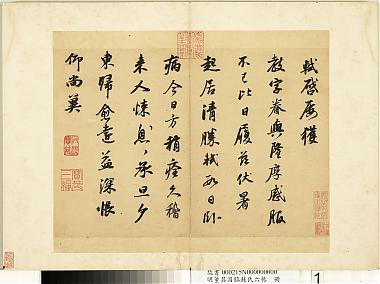 軾啟屢獲
教字眷與隆厚感服
不已比日履茲伏暑
起居清勝軾數日臥
病今日方稍痊久稽
來人悚息〻來旦夕
東歸愈遠益深悵
仰尚冀
故書000215N000000000
明董其昌臨蘇氏六帖 冊
1